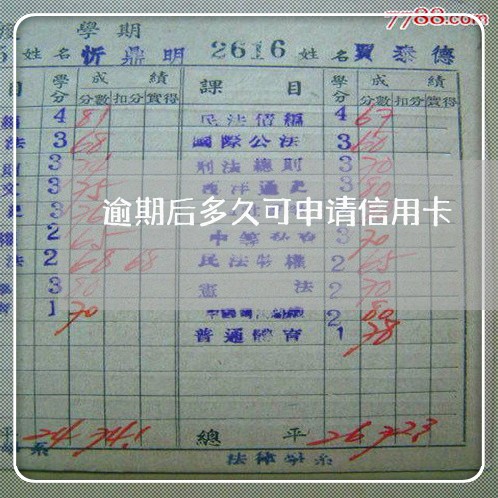 7788.com
學期
姓名 忻鼎明 2616 姓名 賈泰德
目 學分 成績 課目 學分 成績
分數 扣分 實得 分數 扣分 實得
4 81 民法債編 4 67
法 3 68 國際公法 3 60
3 刑法總則 3 70
文 3 75 西洋通史 3 80
逾期后多久可申请信用卡
2 65 3 70
法 2 68 68 民法物權 2 65
3 80 憲法 2 70
1 70 2 80
普通體育 1 78
平 24 74.1 總平 26 72.3
系 法律學系